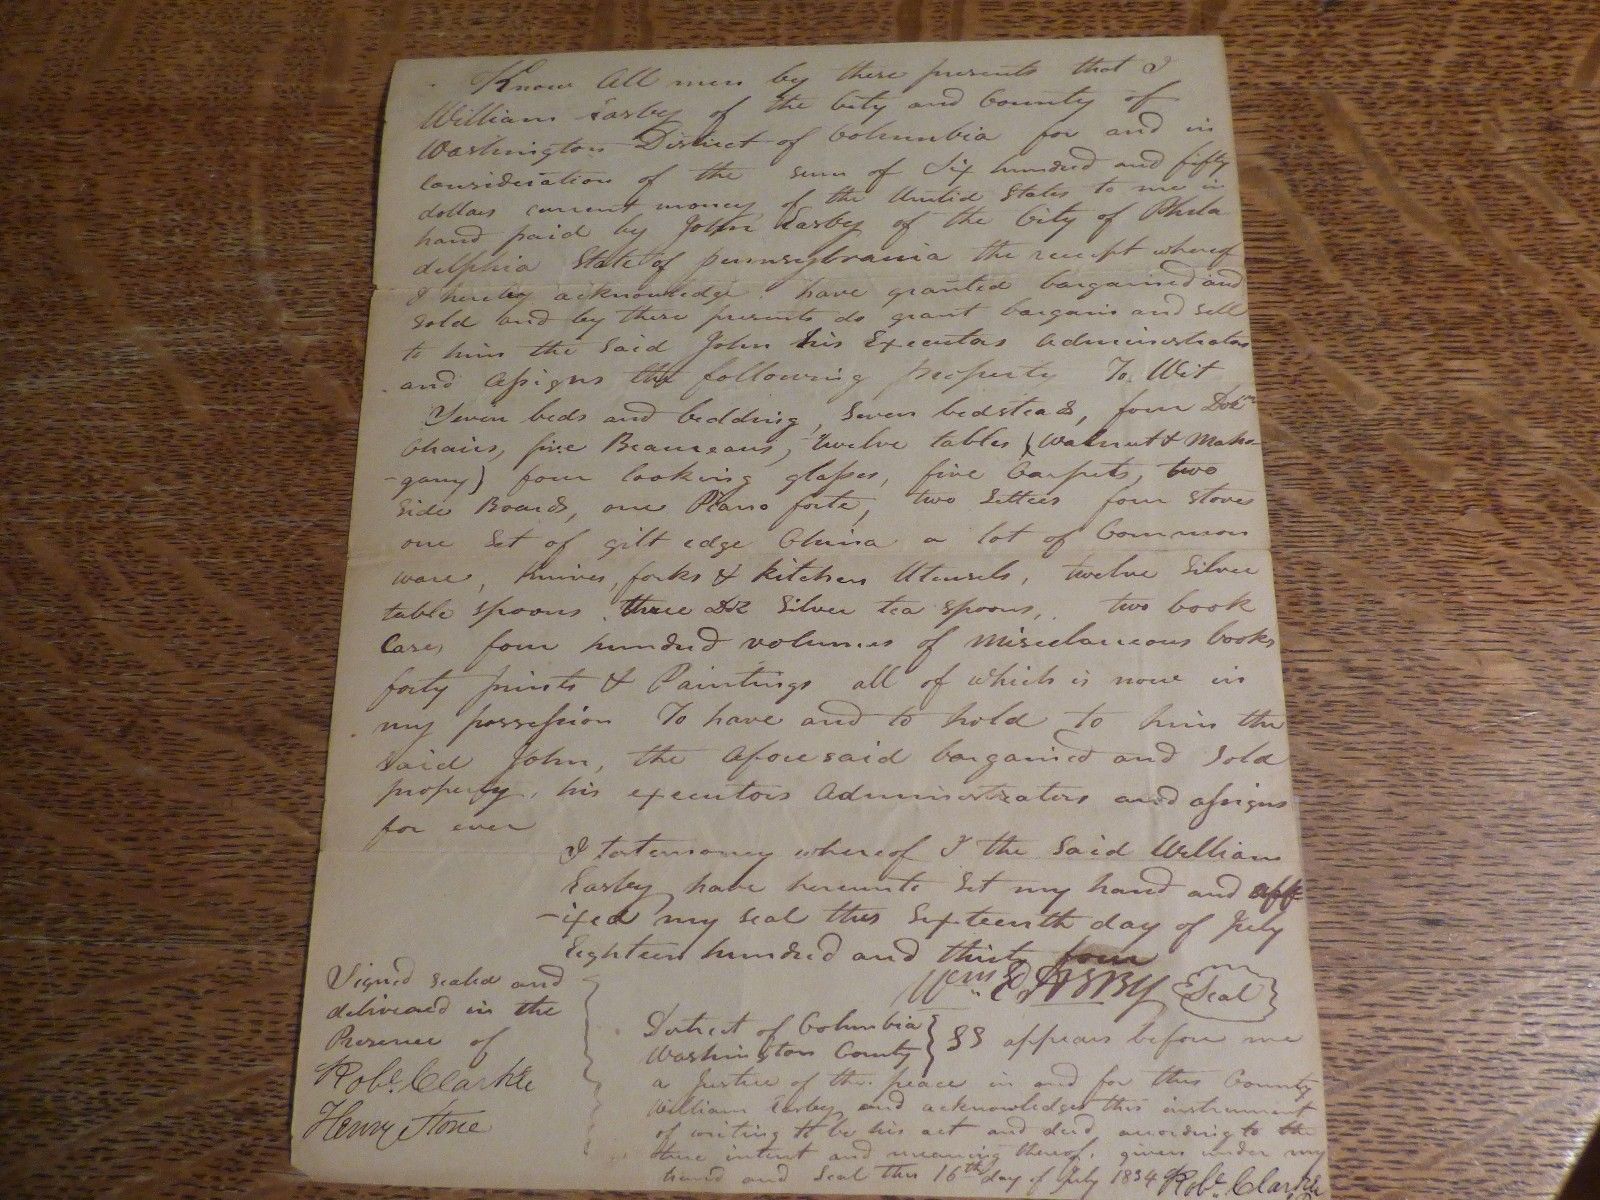 Know All men by these presents that I
William Easby of the City and County of
Washington District of Columbia for and in
Consideration of the sum of Six hundred and fifty
dollars current money of the United States to me in
hand paid by John Easby of the City of Phila
delphia State of Pennsylvania the receipt whereof
I hereby acknowledge. have granted bargained and
Sold and by these presents do grant bargain and Sell
to him the Said John his Executors Administrators
and Assigns the following property To. Wit
Seven beds and bedding, Seven bedsteads, four Doz
Chairs, five Beaureaus, Twelve tables (Walnut & Maho-
-gany) four looking glasses, five Carpets, two
Side Boards, one Piano forte, two Settees four stoves
one Set of gilt edge China a lot of Common
ware, knives, forks & kitchen Utensels, twelve Silver
table spoons three Doz Silver tea spoons, two book
Cases four hundred volumes of Miscelaneous books
forty prints & Paintings all of which is now in
my possession To have and to hold to him the
Said John, the Aforesaid bargained and Sold
property, his executors Administrators and assigns
for ever
I testemoney whereof I the Said William
Easby have hereunto Set my hand and aff
-ixed my Seal this Sixteenth day of July
Eighteen hundred and thirty four
Wm EASBY Seal
Signed sealed and
delivered in the
Presence of
Robt. Clarke
Henry Stone
District of Columbia
Washington County } SS appears before me
a Justice of the peace in and for this County
William Easby and acknowledges this instrument
of writing to be his act and deed according to the
true intent and meaning thereof. given under my
hand and Seal this 16th day of July 1834 Robt. Clarke